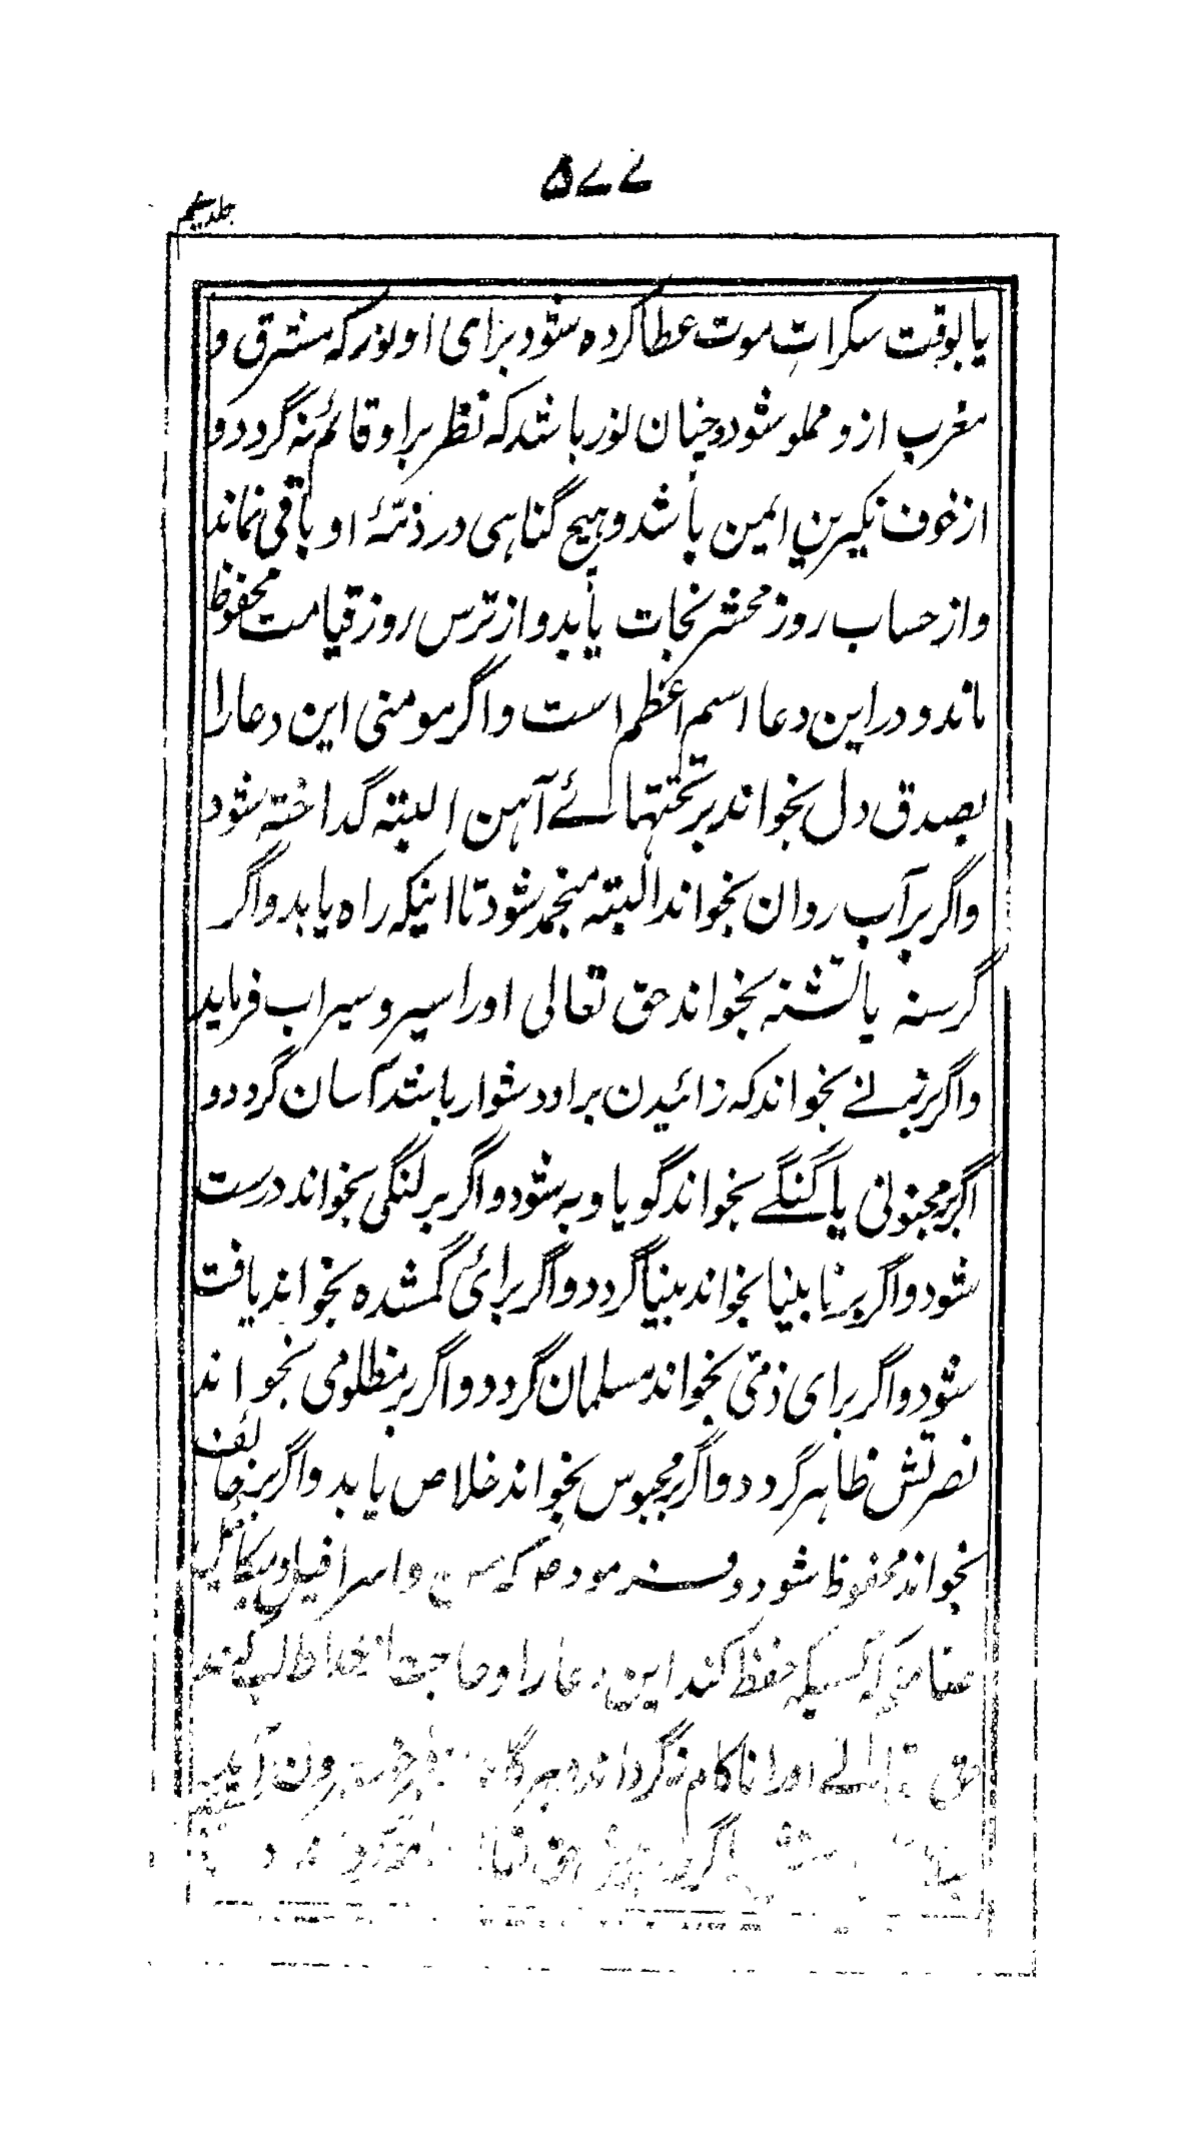 ۵۷۷
یا بوقت سکرات موت عطا کرده شود برای او نور که مشرق و
مغرب از و مملو شود و چنان نور باشد که نظر بر او قائم نه گردد و
از خوف نکیرین ایمن باشد و هیچ گناهی در ذمّۂ او باقی نماند
و از حساب روز محشر نجات یابد و از ترس روز قیامت محفوظ
ماند و در این دعا اسم اعظم است و اگر مومنی این دعا را
بصدق دل بخواند بر تختهائے آهن البته گداخته شود
و اگر بر آب روان بخواند البته منجمد شود تا اینکه راه یابد و اگر
گرسنه یا تشنه بخواند حق تعالی او را سیر و سیراب فرماید
و اگر بر زنے بخواند که زائیدن بر او دشوار باشد آسان گردد و
اگر بر مجنونی یا گنگے بخواند گویا و به شود و اگر بر لنگی بخواند درست
شود و اگر بر نابینا بخواند بینا گردد و اگر برائ گمشده بخواند یافت
شود و اگر برای ذمّی بخواند مسلمان گردد و اگر بر مظلومی بخواند
نصرتش ظاهر گردد و اگر بر محبوس بخواند خلاص یابد و اگر بر خائف
بخواند محفوظ شود و فرمود که و اسرافیل و میکائیل
که کسیکه حفظ کند این دعا را و حاجت از خدا طلب کند
حق تعالے او را ناکام نه گرداند و هر گاه
اگر حق